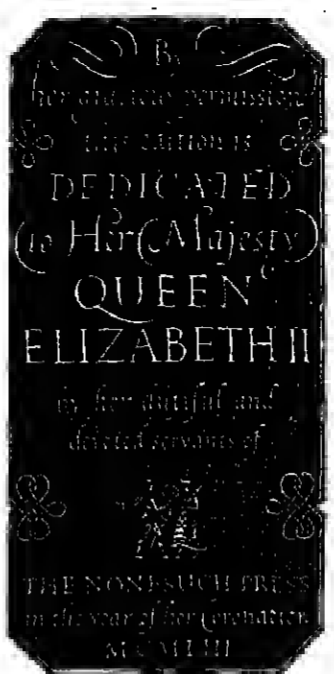 By
her gracious permission
this edition is
DEDICATED
to Her Majesty
QUEEN
ELIZABETH II
by her dutiful and
devoted servants of
THE NONESUCH PRESS
in the year of her Coronation
MCMLIII